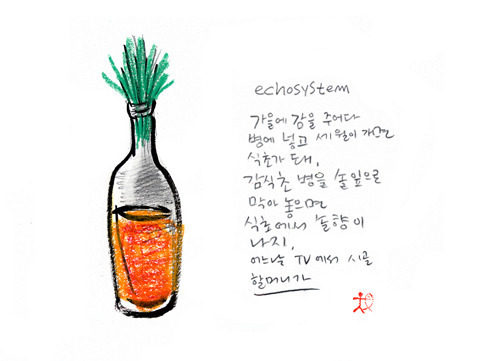 echosystem
가을에 감을 주어다
병에 넣고 세월이 가면
식초가 돼,
감식초 병을 솔잎으로
막아 놓으면
식초에서 솔향이
나지,
어느날 TV에서 시골
할머니가